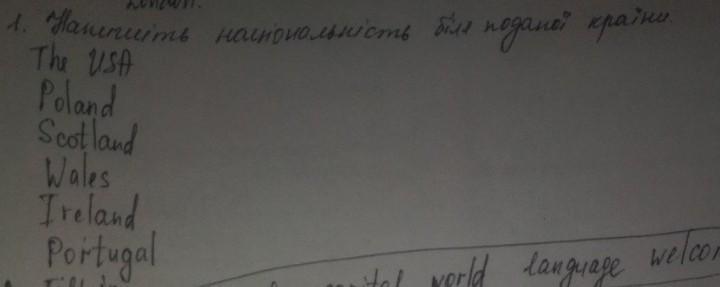 London.
1. Напишіть національність біля поданої країни.
The USA
Poland
Scotland
Wales
Ireland
Portugal
capital world language welcom